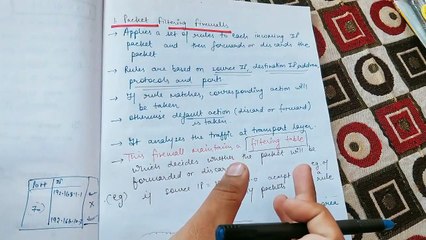 1. Packet Filtering Firewalls
→ Applies a set of rules to each incoming IP
packet and then forwards or discards the
packet
→ Rules are based on source IP, destination IP address
protocols and ports
→ If rule matches, corresponding action will
be taken
→ otherwise default action (discard or forward)
is taken
→ It analyses the traffic at transport layer.
→ This firewall maintains a filtering table
which decides whether the packet will be
forwarded or discarded
(eg) if source IP =
packets
rule
Port
IP
192.168.1.1